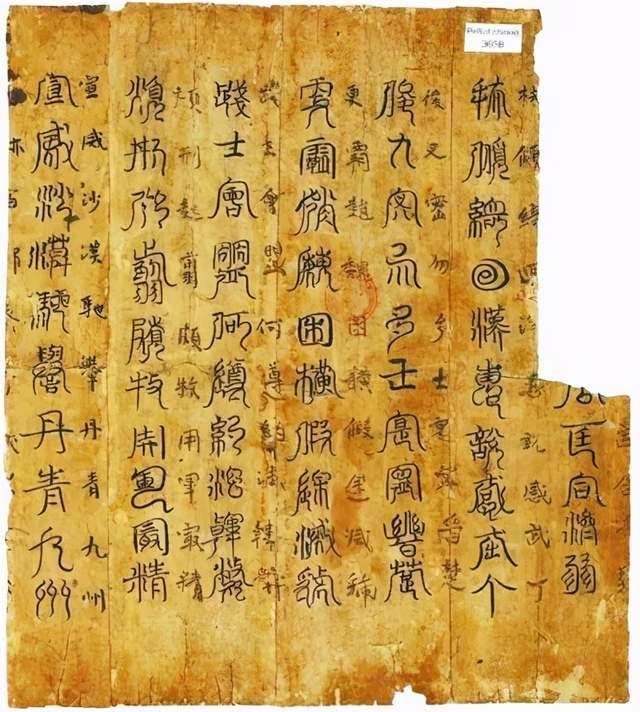 Pelliot chinois
3658
匡合濟弱
公匡合濟弱
扶傾綺迴漢惠說感武丁
扶傾綺回漢惠說感武丁
俊乂密勿多士寔寧晉楚
俊乂密勿多士寔寧晉楚
更霸趙魏困橫假途滅虢
更霸趙魏困橫假途滅虢
踐土會盟何遵約法韓弊
踐土會盟何遵約法韓弊
煩刑起翦頗牧用軍最精
煩刑起翦頗牧用軍最精
宣威沙漠馳譽丹青九州
宣威沙漠馳譽丹青九州
百